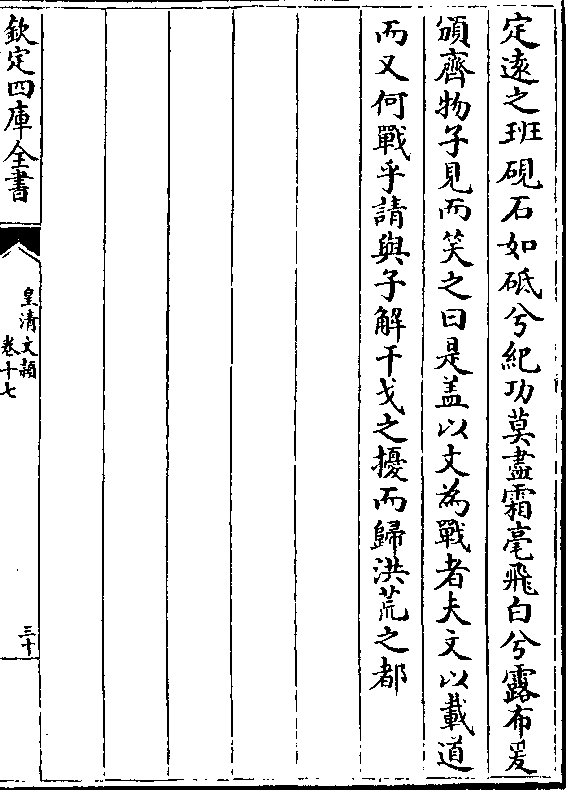 定遠之班硯石如砥兮紀功莫盡霜毫飛白兮露布爰
頒齊物子見而笑之曰是盖以文為戰者夫文以載道
而又何戰乎請與子解干戈之擾而歸洪荒之都
欽定四庫全書
皇清文穎
卷十七
三十